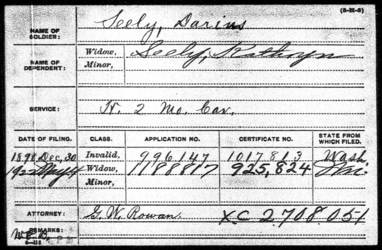 (3-28-6)
NAME OF SOLDIER: Seely, Darius
NAME OF DEPENDENT: Widow, Seely, Kathryn
Minor,
SERVICE: H. 2 Mo. Cav.
DATE OF FILING. CLASS. APPLICATION NO. CERTIFICATE NO. STATE FROM WHICH FILED.
1898 Dec, 30 Invalid, 996,147 1017,813 Wash
1922 May 4 Widow, 1188817 925,824
Minor,
ATTORNEY: G. W. Rowan. XC 2708051
REMARKS: